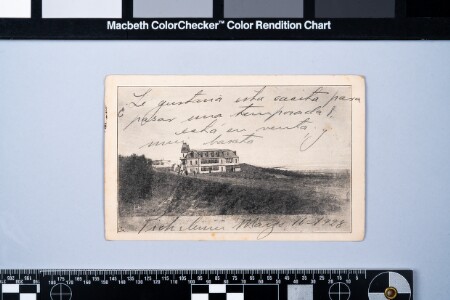 Macbeth ColorChecker™ Color Rendition Chart
¿Le gustaría esta casita para
pasar una temporada?
está en venta y
muy barata
Pichilemu Marzo 16-1921